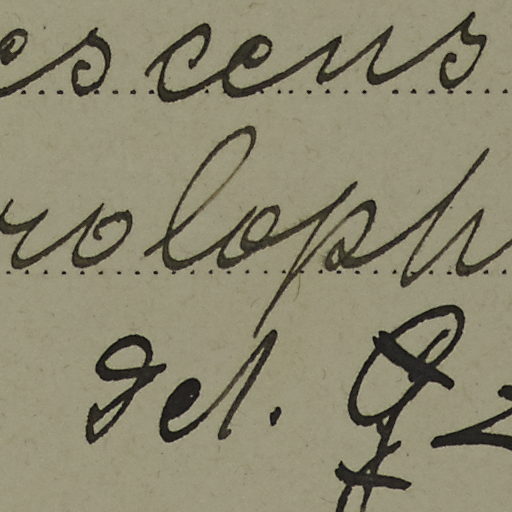 escens
roloph
Det.